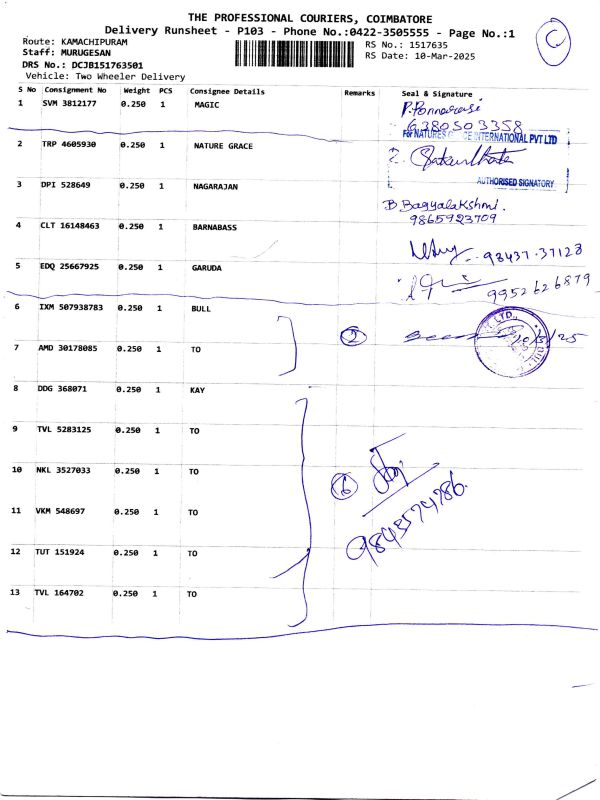 THE PROFESSIONAL COURIERS, COIMBATORE
Delivery Runsheet - P103 - Phone No.:0422-3505555 - Page No.:1
C
Route: KAMACHIPURAM
RS No.: 1517635
Staff: MURUGESAN
RS Date: 10-Mar-2025
DRS No.: DCJB151763501
Vehicle: Two Wheeler Delivery
S No Consignment No Weight PCS Consignee Details Remarks Seal & Signature
1 SVM 3812177 0.250 1 MAGIC
P. Ponnarasi
6380503358
For NATURES INTERNATIONAL PVT LTD
2 TRP 4605930 0.250 1 NATURE GRACE
2.
AUTHORISED SIGNATORY
3 DPI 528649 0.250 1 NAGARAJAN
B. Bagyalakshmi.
9865923709
4 CLT 16148463 0.250 1 BARNABASS
98437-37128
5 EDQ 25667925 0.250 1 GARUDA
9952626879
6 IXM 507938783 0.250 1 BULL
2
10/3/25
LTD.
7 AMD 30178085 0.250 1 TO
8 DDG 368071 0.250 1 KAY
9 TVL 5283125 0.250 1 TO
10 NKL 3527033 0.250 1 TO
6
9843574786.
11 VKM 548697 0.250 1 TO
12 TUT 151924 0.250 1 TO
13 TVL 164702 0.250 1 TO